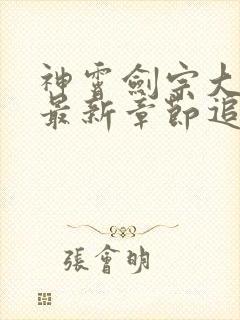 神霄劍宗大
最新章節追
張會明